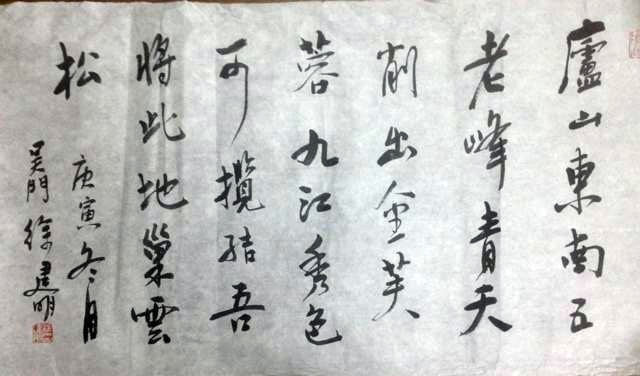 廬山東南五
老峰青天
削出金芙
蓉九江秀色
可攬結吾
將此地巢雲
松
庚寅冬月
吴門徐建明